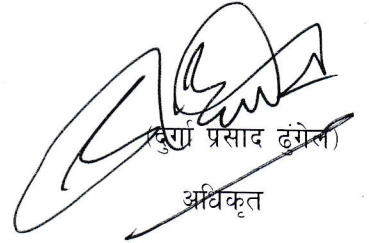 (दुर्गा प्रसाद ढुंगेल)
अधिकृत